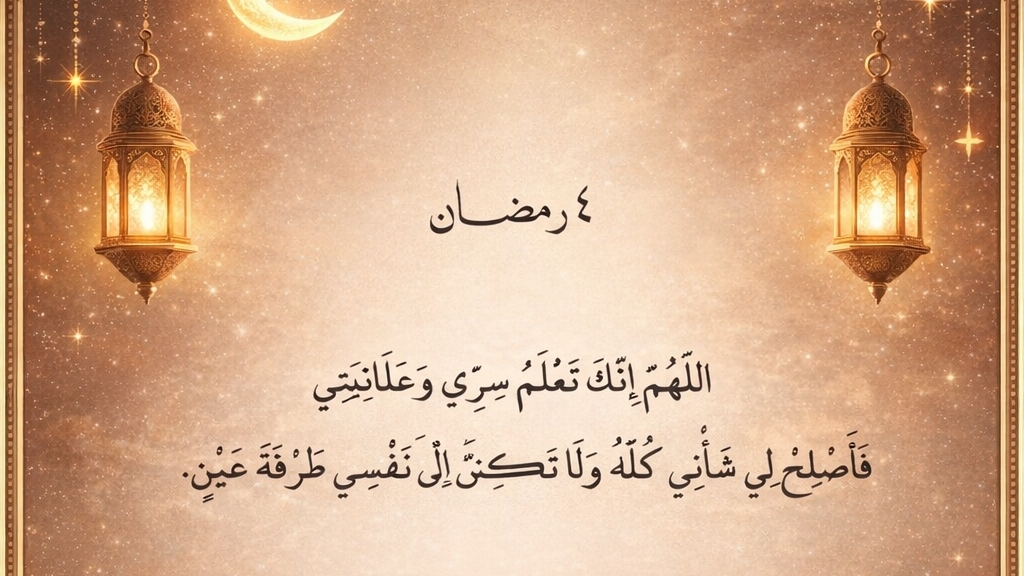 ٤ رمضان
اللَّهُمّ إِنَّكَ تَعْلَمُ سِرِّي وَعَلَانِيَتِي
فَأَصْلِحْ لِي شَأْنِي كُلَّهُ وَلَا تَكِنَّ إِلَى نَفْسِي طَرْفَةَ عَيْنٍ.